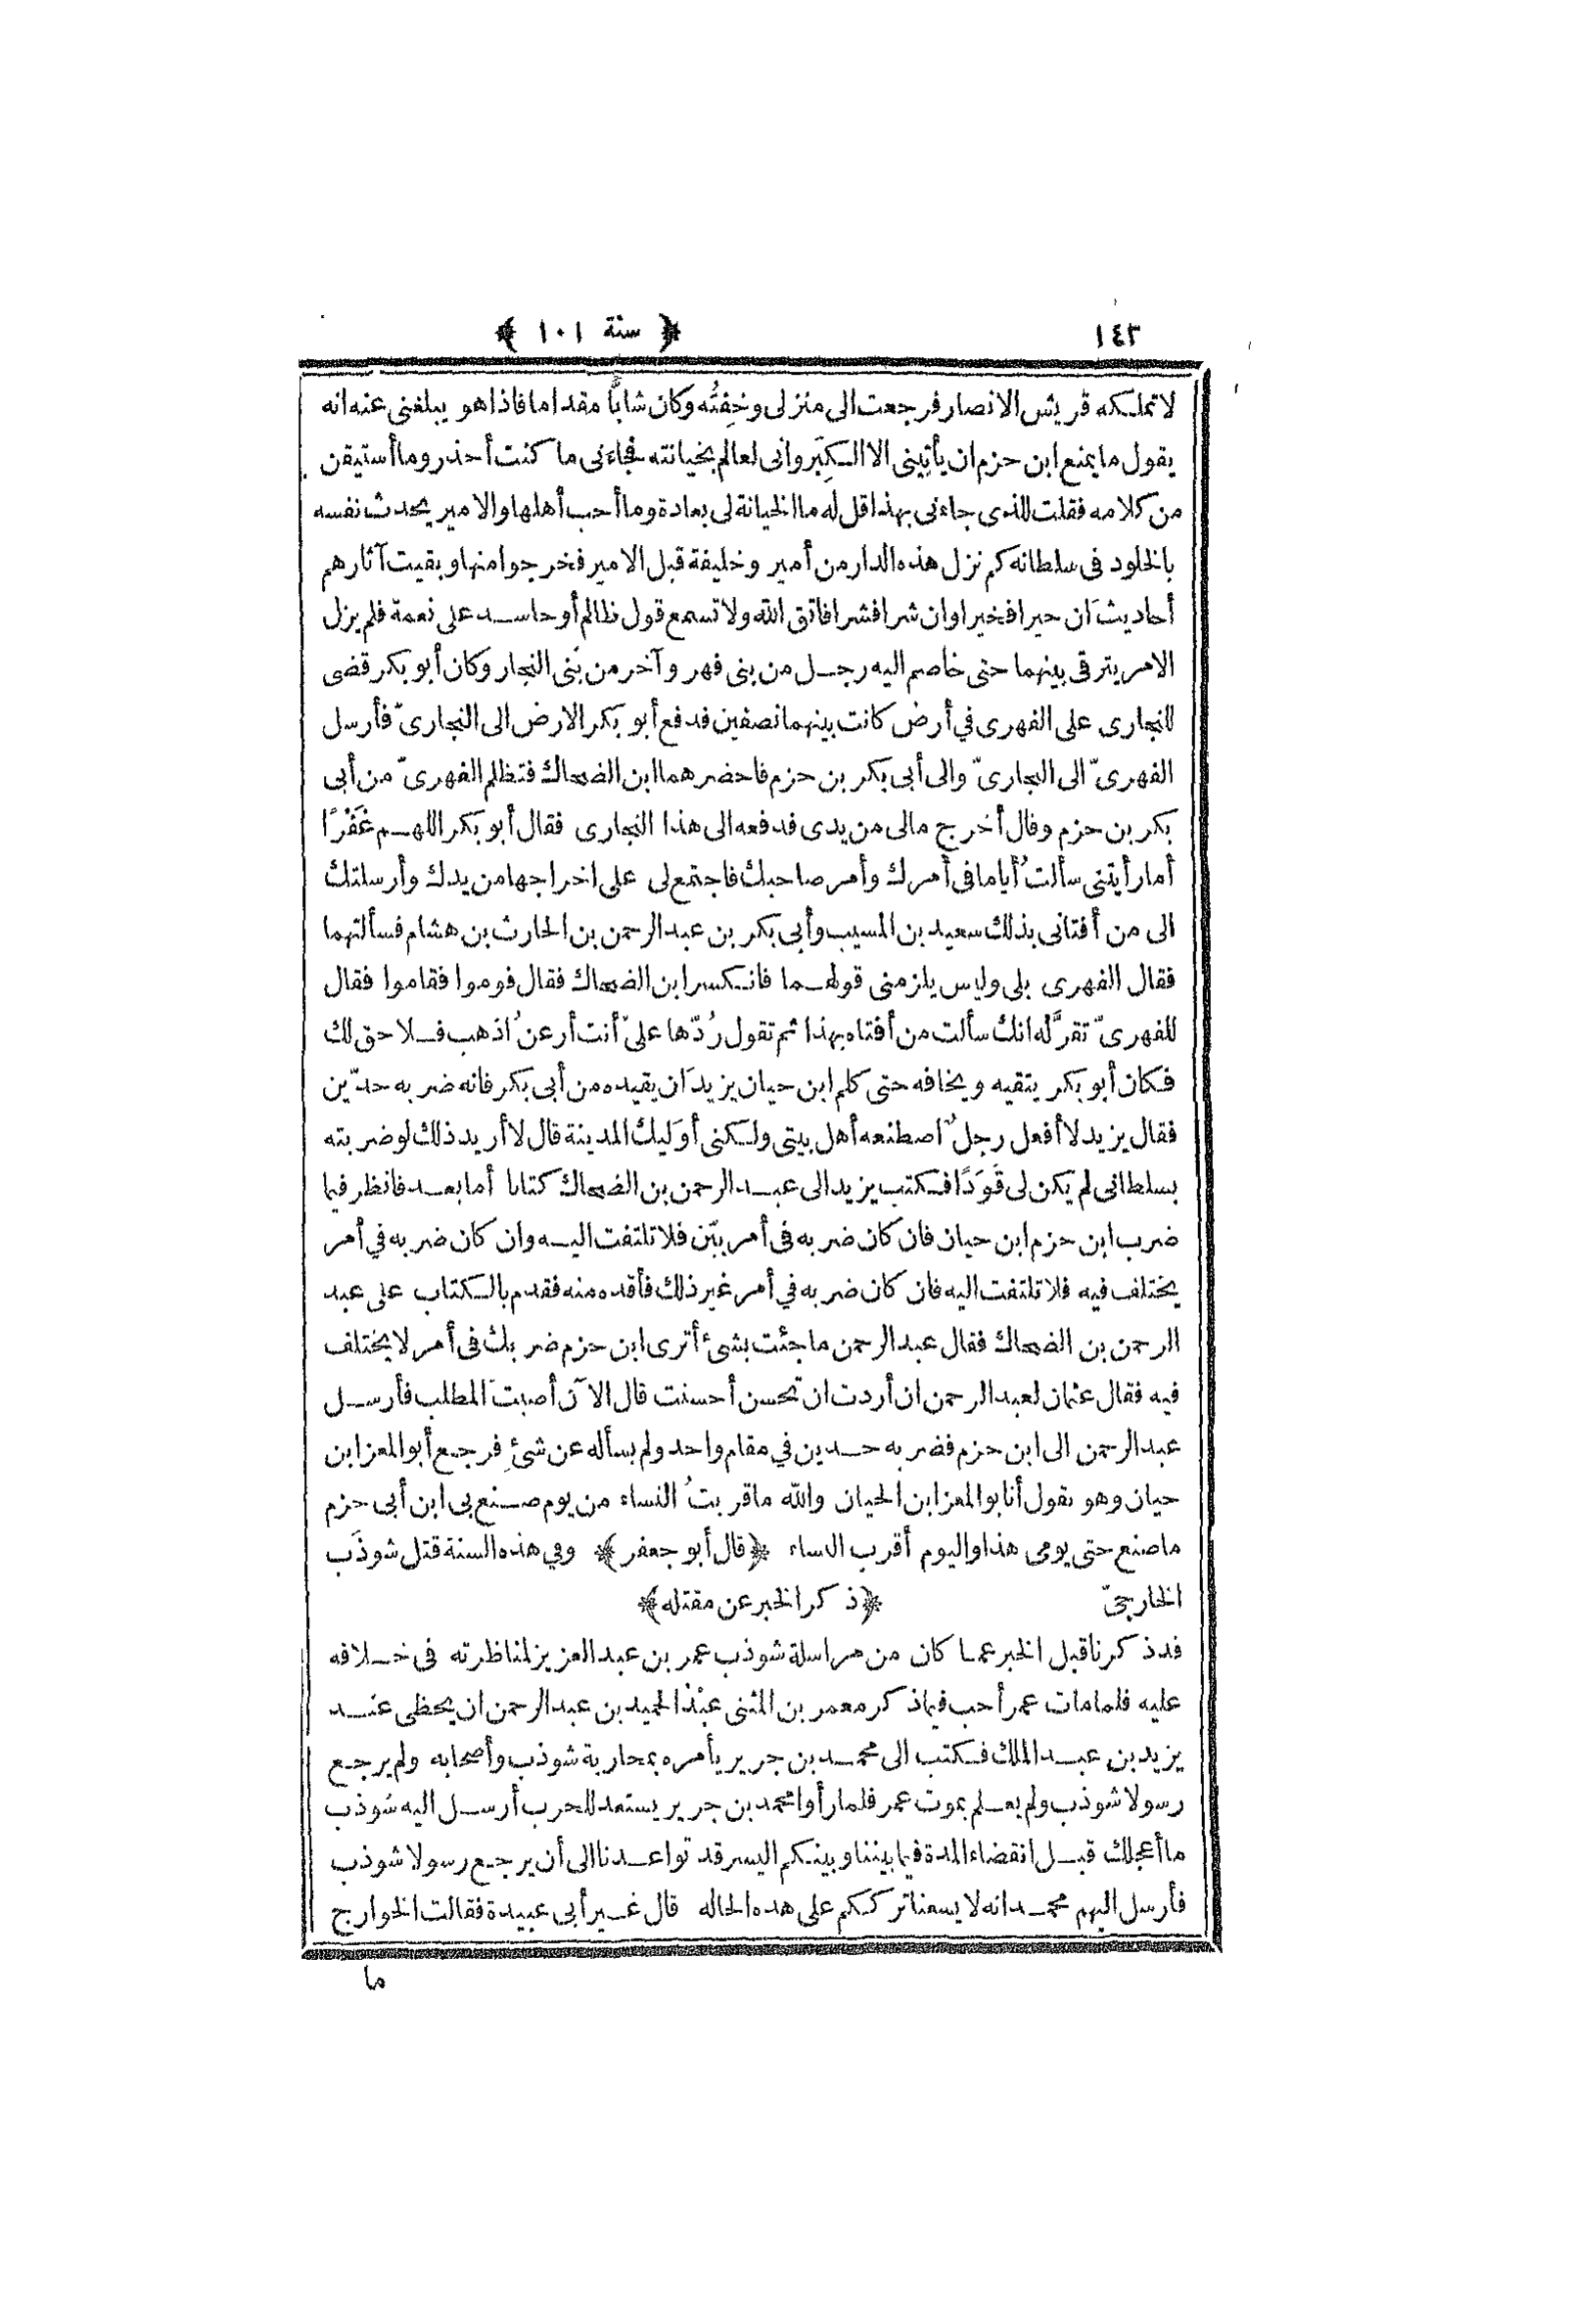 ١٤٢ ﴿ سنة ١٠١ ﴾
لا تملكه قريش الانصار فرجعت الى منزلى وخِفتُه وكان شابًّا مقداما فاذا هو يبلغنى عنه انه
يقول ما يمنع ابن حزم ان يأتينى الا الكِبَر وانى لعالم بخيانته فجاءنى ما كنت أحذر وما أستيقن
من كلامه فقلت للذى جاءنى بهذا قل له ما الخيانة لى بعادة وما أحب أهلها والامير يحدث نفسه
بالخلود فى سلطانه كم نزل هذه الدار من أمير وخليفة قبل الامير فخرجوا منها وبقيت آثارهم
أحاديث ان خيرا فخيرا وان شرا فشرا فاتق الله ولا تسمع قول ظالم أو حاسد على نعمة فلم يزل
الامر يترقى بينهما حتى خاصم اليه رجل من بنى فهر وآخر من بنى النجار وكان أبو بكر قضى
للنجارى على الفهرى في أرض كانت بينهما نصفين فدفع أبو بكر الارض الى النجارىّ فأرسل
الفهرىّ الى النجارىّ والى أبى بكر بن حزم فاحضرهما ابن الضحاك فتظلم الفهرىّ من أبى
بكر بن حزم وقال أخرج مالى من يدى فدفعه الى هذا النجارى فقال أبو بكر اللهم غَفْرًا
أما رأيتنى سألتُ أياما فى أمرك وأمر صاحبك فاجتمع لى على اخراجها من يدك وأرسلتك
الى من أفتانى بذلك سعيد بن المسيب وأبى بكر بن عبد الرحمن بن الحارث بن هشام فسألتهما
فقال الفهرى بلى وليس يلزمنى قولهما فانكسر ابن الضحاك فقال قوموا فقاموا فقال
للفهرىّ تقرّ له انك سألت من أفتاه بهذا ثم تقول رُدّها علىّ أنت أرعنُ اذهب فلا حق لك
فكان أبو بكر يتقيه ويخافه حتى كلم ابن حيان يزيد ان يقيده من أبى بكر فانه ضربه حدّين
فقال يزيد لا أفعل رجلٌ اصطنعه أهل بيتى ولكنى أوليك المدينة قال لا أريد ذلك لو ضربته
بسلطانى لم يكن لى قَوَدًا فكتب يزيد الى عبد الرحمن بن الضحاك كتابا أما بعد فانظر فيما
ضرب ابن حزم ابن حيان فان كان ضربه فى أمر بيّن فلا تلتفت اليه وان كان ضربه في أمر
يختلف فيه فلا تلتفت اليه فان كان ضربه في أمر غير ذلك فأقده منه فقدم بالكتاب على عبد
الرحمن بن الضحاك فقال عبد الرحمن ما جئت بشئ أترى ابن حزم ضربك فى أمر لا يختلف
فيه فقال عثمان لعبد الرحمن ان أردت ان تحسن أحسنت قال الآن أصبتَ المطلب فأرسل
عبد الرحمن الى ابن حزم فضربه حدين في مقام واحد ولم يسأله عن شئٍ فرجع أبو المعزا بن
حيان وهو يقول أنا بو المعزا بن الحيان والله ما قربتُ النساء من يوم صنع بى ابن أبى حزم
ما صنع حتى يومى هذا واليوم أقرب النساء ﴿قال أبو جعفر﴾ وفى هذه السنة قتل شوذَب
الخارجىّ ﴿ذكر الخبر عن مقتله﴾
قد ذكرنا قبل الخبر عما كان من مراسلة شوذب عمر بن عبد العزيز لمناظرته فى خلافه
عليه فلما مات عمر أحب فيما ذكر معمر بن المثنى عبْدُ الحميد بن عبد الرحمن ان يحظى عند
يزيد بن عبد الملك فكتب الى محمد بن جرير يأمره بمحاربة شوذب وأصحابه ولم يرجع
رسولا شوذب ولم يعلم بموت عمر فلما رأوا محمد بن جرير يستعد للحرب أرسل اليه شوذب
ما أعجلك قبل انقضاء المدة فيما بيننا وبينكم اليس قد تواعدنا الى أن يرجع رسولا شوذب
فأرسل اليهم محمد انه لا يسعنا تركم على هذه الحاله قال غير أبى عبيدة فقالت الخوارج
ما